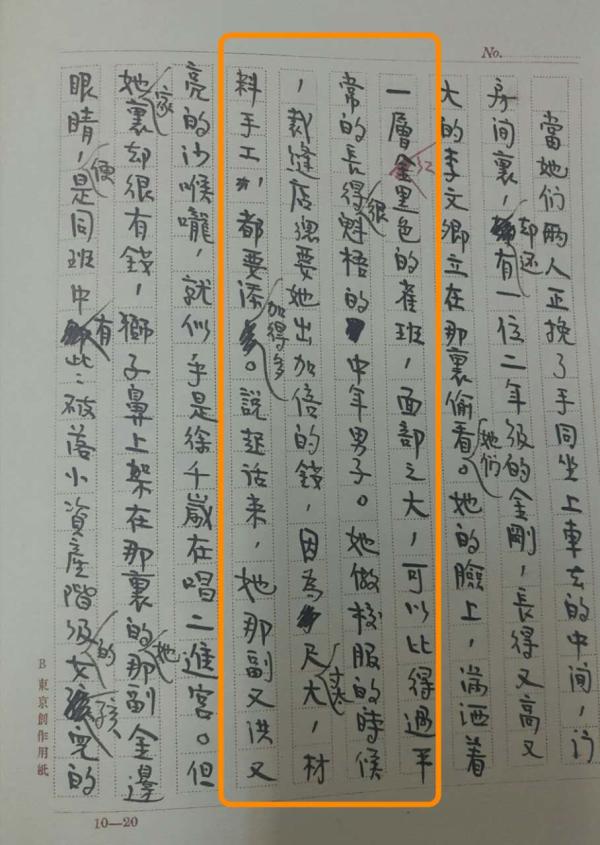 No.
當她们兩人正挽了手同坐上車去的中间,门
房间裏,却还有一位二年级的金剛,長得又高又
大的李文卿立在那裏偷看她们。她的臉上,滿洒着
一層红黑色的雀班,面部之大,可以比得過平
常的長得很魁梧的中年男子。她做校服的時候
,裁縫店總要她出加倍的錢,因為尺寸太大,材
料手工,都要添加得多。說起话来,她那副又洪又
亮的沙喉嚨,就似乎是徐千歲在唱二進宮。但
她家裏却很有錢,獅子鼻上架在那裏的她那副金邊
眼睛,便是同班中有些破落小資産階级的女孩兒的
B 東京創作用紙
10—20